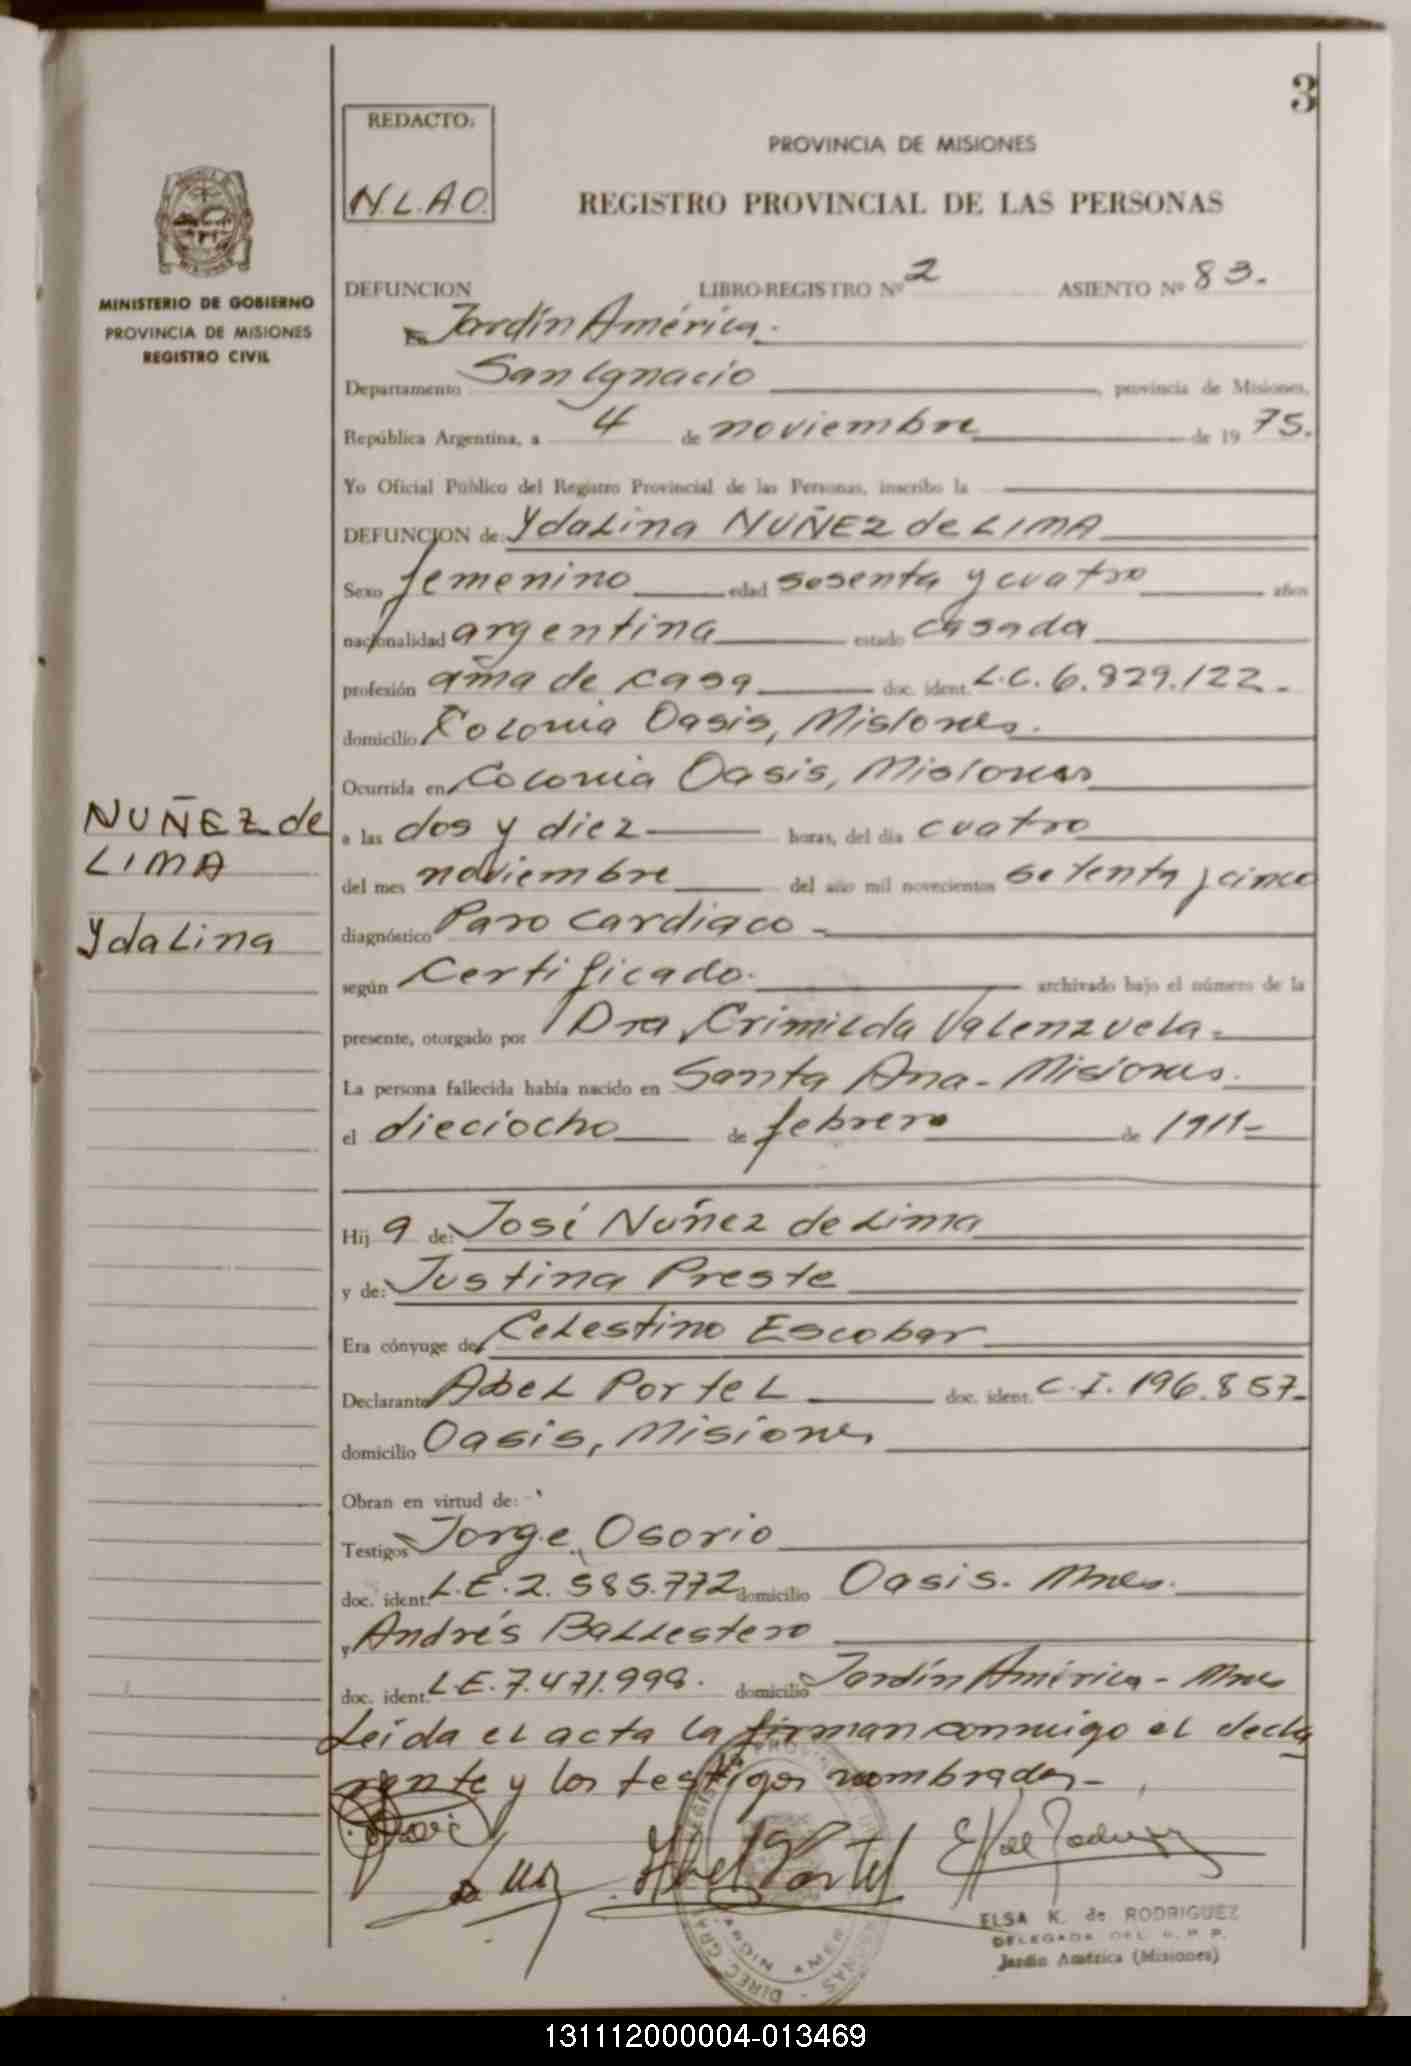 3
REDACTO:
N.L.A.O.
PROVINCIA DE MISIONES
REGISTRO PROVINCIAL DE LAS PERSONAS
MINISTERIO DE GOBIERNO
PROVINCIA DE MISIONES
REGISTRO CIVIL
DEFUNCION LIBRO-REGISTRO Nº 2 ASIENTO Nº 83.
En Jardín América.
Departamento San Ignacio, provincia de Misiones,
República Argentina, a 4 de noviembre de 19 75.
Yo Oficial Público del Registro Provincial de las Personas, inscribo la
DEFUNCION de: Ydalina NUÑEZ de LIMA
Sexo femenino edad sesenta y cuatro años
nacionalidad argentina estado casada
profesión ama de casa doc. ident. L.C. 6.829.122.-
domicilio Colonia Oasis, Misiones.
Ocurrida en Colonia Oasis, Misiones
NUÑEZ de
LIMA
Ydalina
a las dos y diez horas, del día cuatro
del mes noviembre del año mil novecientos setenta y cinco
diagnóstico Paro Cardiaco -
según Certificado. archivado bajo el número de la
presente, otorgado por Dra Crimilda Valenzuela.
La persona fallecida había nacido en Santa Ana - Misiones.
el dieciocho de febrero de 1911-
Hij a de: José Nuñez de Lima
y de: Justina Preste
Era cónyuge de Celestino Escobar
Declarante Abel Portel doc. ident. C.I. 196.857-
domicilio Oasis, Misiones
Obran en virtud de:
Testigos Jorge Osorio
doc. ident. L.E. 2.585.772 domicilio Oasis. Mnes.
y Andrés Ballestero
doc. ident. L.E. 7.471.998. domicilio Jardín América - Mnes
Leida el acta la firman conmigo el decla
rante y los testigos nombrados-
Abel Portel
ELSA K. de RODRIGUEZ
DELEGADA DEL R. P. P.
Jardín América (Misiones)
131112000004-013469